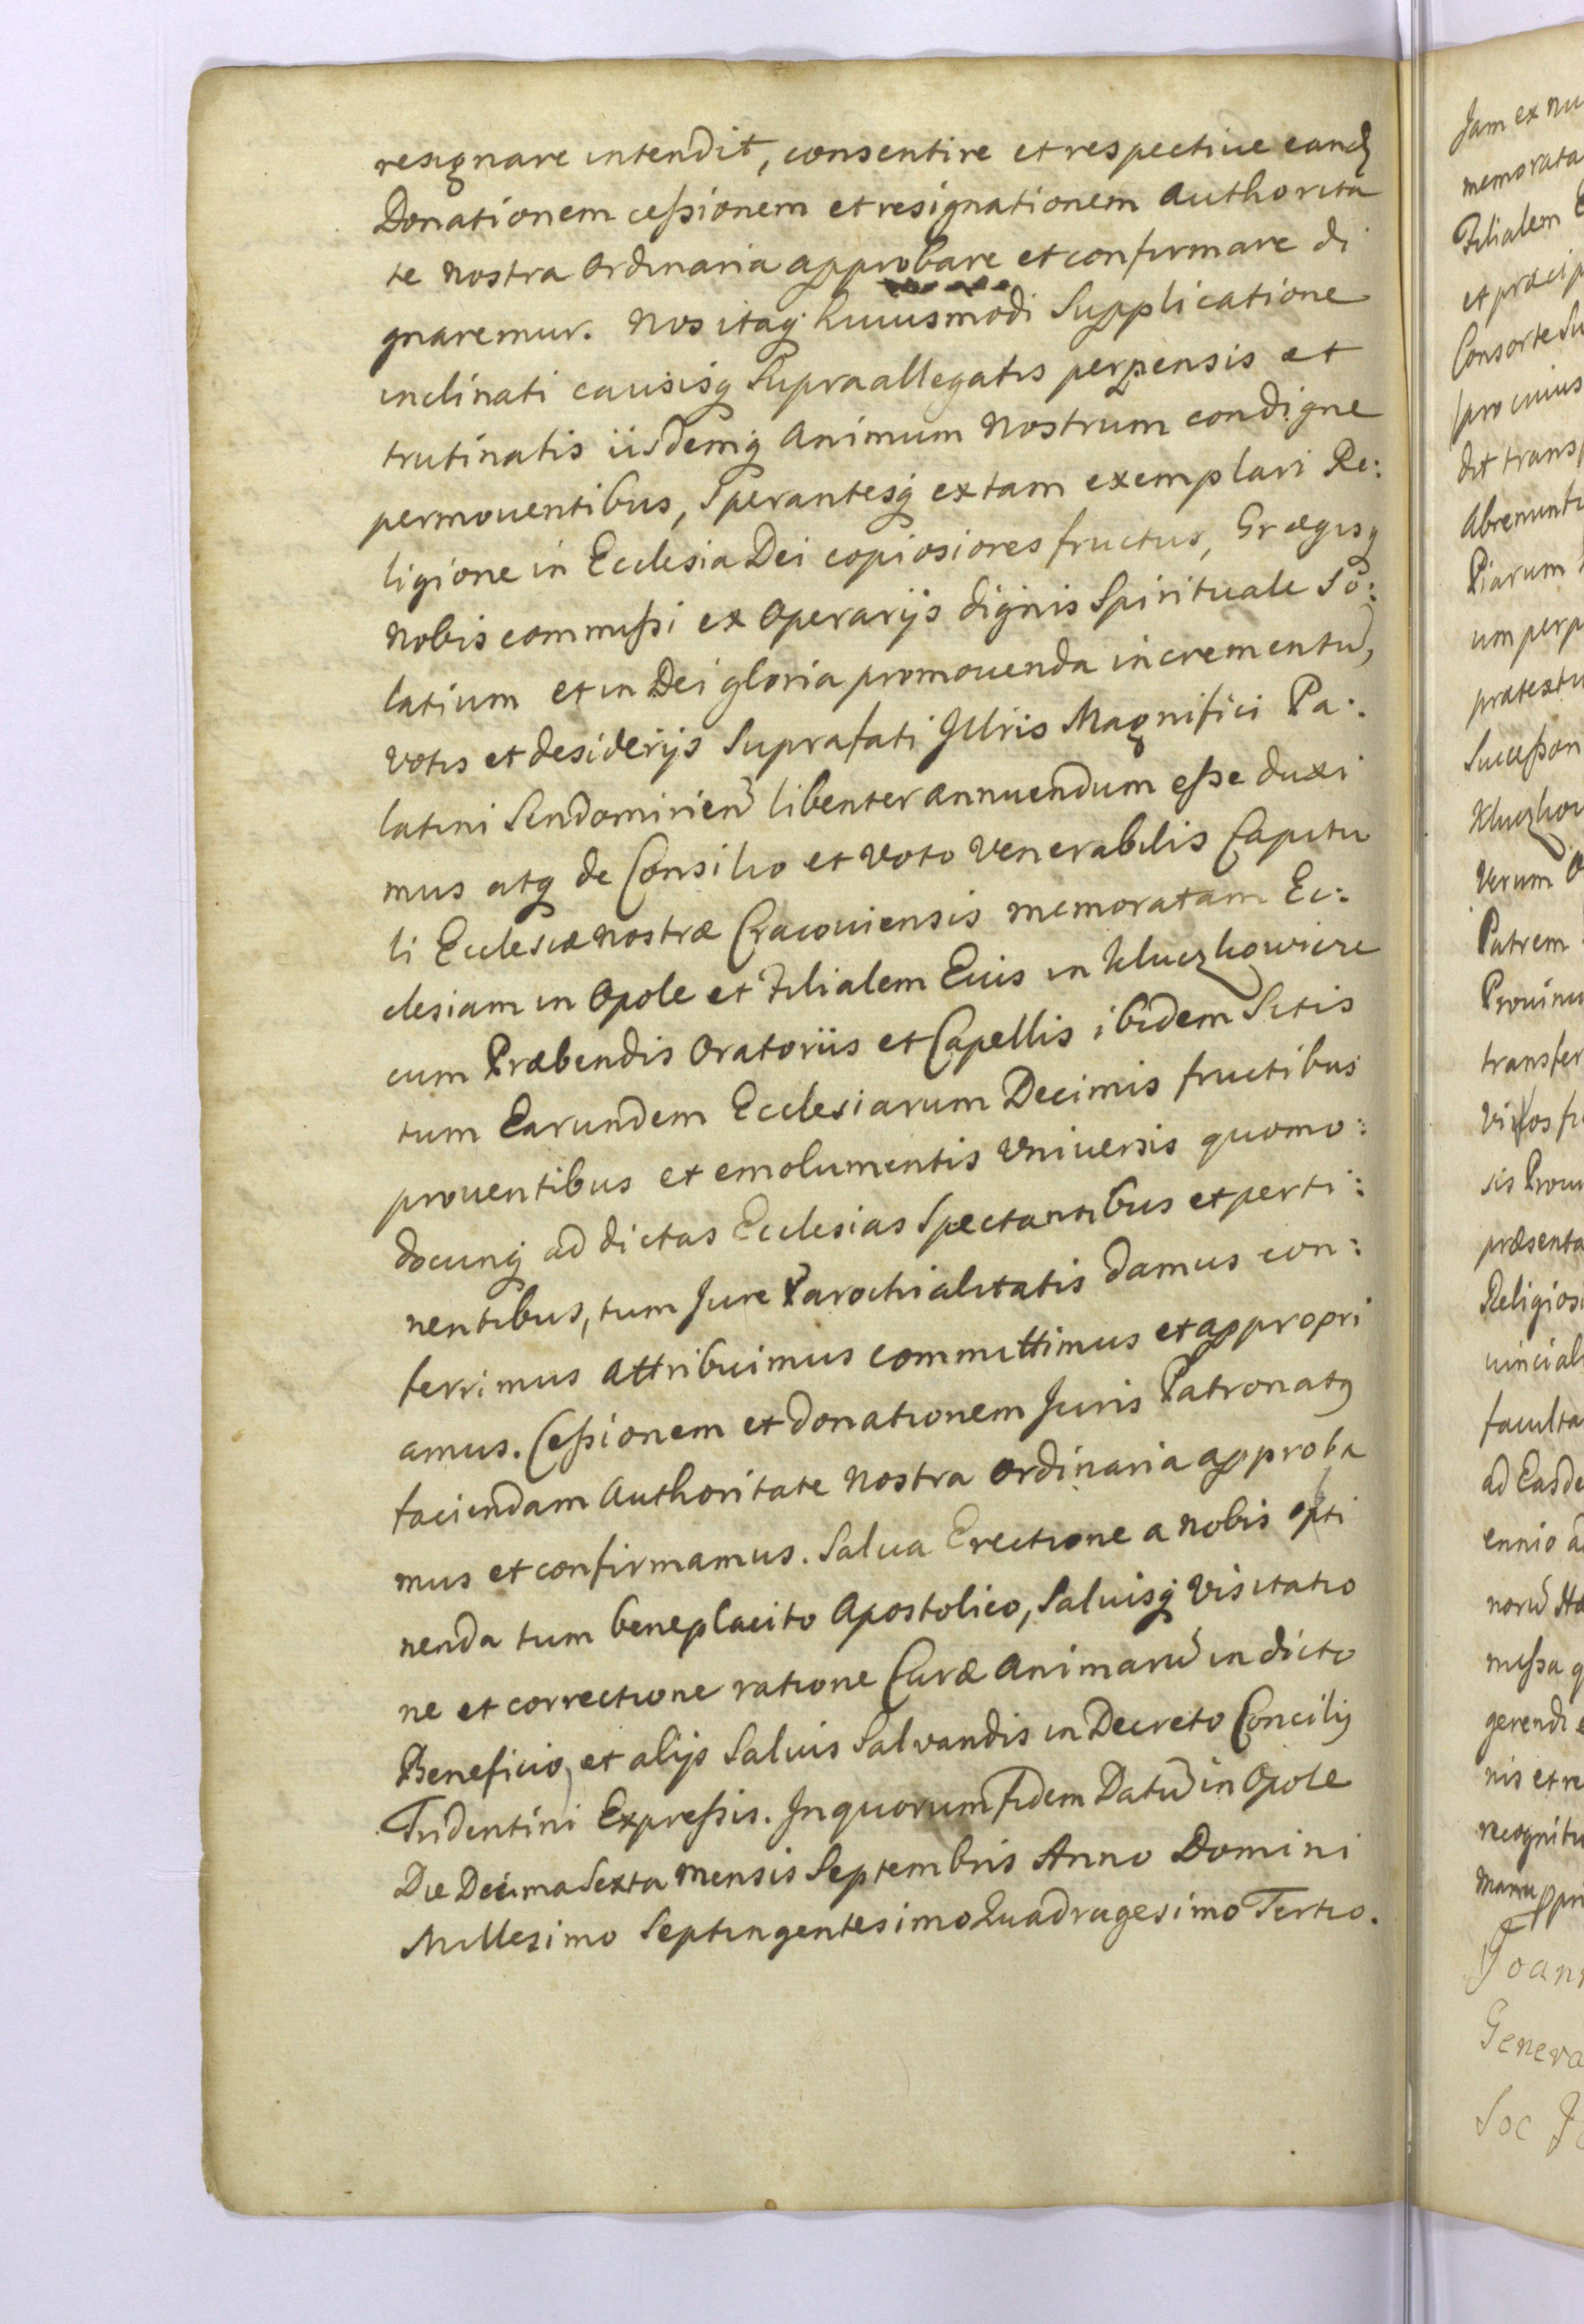 resignare intendit, consentire et respective eandꝫ
Donationem cessionem et resignationem Authorita
te nostra Ordinaria approbare et confirmare di
gnaremur. Nos itaqꝫ huiusmodi Supplicatione
inclinati causisqꝫ Supraallegatis perpensis et
trutinatis iisdemqꝫ Animum Nostrum condigne
permouentibus, Sperantesqꝫ ex tam exemplari Re:
ligione in Ecclesia Dei copiosiores fructus, Gregisqꝫ
Nobis commissi ex Operarijs dignis Spirituale So:
latium et in Dei gloria promouenda incrementū,
votis et desiderijs Suprafati Jllris Magnifici Pa:
latini Sendomirien̄ libenter annuendum esse duxi
mus atqꝫ de Consilio et Voto Venerabilis Capitu
li Ecclesiæ nostræ Cracouiensis memoratam Ec:
clesiam in Opole et Filialem Eius in Kluczkowice
cum Præbendis Oratoriis et Capellis ibidem Sitis
tum Earundem Ecclesiarum Decimis fructibus
prouentibus et emolumentis Vniuersis quomo:
docunqꝫ ad dictas Ecclesias Spectantibus et perti:
nentibus, tum Jure Parochialitatis Damus con:
ferrimus Attribuimus committimus et appropri
amus. Cessionem et donationem Juris Patronatꝰ
faciendam Authoritate Nostra Ordinaria approba
mus et confirmamus. Salua Erectione a Nobis opti
nenda tum beneplacito Apostolico, Saluisqꝫ Visitatio
ne et correctione ratione Curæ Animarū in dicto
Beneficio, et alijs Saluis Salvandis in Decreto Concilij
Tridentini Expressis. Jn quorum Fidem Datū in Opole
Die Decima Sexta Mensis Septembris Anno Domini
Millesimo Septingentesimo Quadragesimo Tertio.
Jam ex nu
memorata
Filialem
et præcip
Consorte Su
pro cuius
dit transp
Abrenunti
Piarum
um perp
prætextu
Successon
Kluczkow
Verum
Patrem
Prouinci
transfer
sis Prou
præsenta
Religiosi
uincial
faculta
ad Easde
ennio a
norū
missa q
gerendi e
nis et re
recognitu
Manu pri
Joann
Genera
Soc